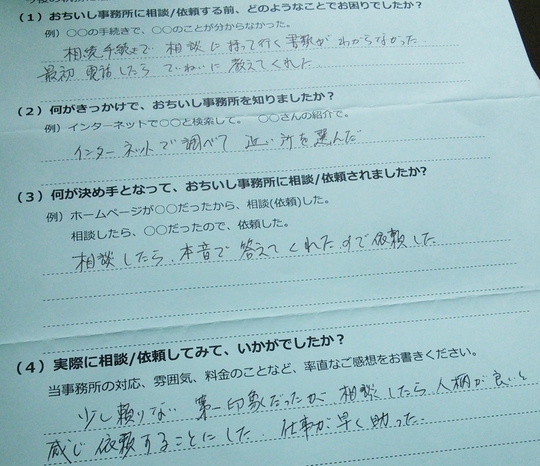 （1）おちいし事務所に相談/依頼する前、どのようなことでお困りでしたか？
例）○○の手続きで、○○のことが分からなかった。
相続手続きで 相談に持って行く書類がわからなかった
最初 電話したら ていねいに教えてくれた
（2）何がきっかけで、おちいし事務所を知りましたか？
例）インターネットで○○と検索して。 ○○さんの紹介で。
インターネットで調べて 近い所を選んだ
（3）何が決め手となって、おちいし事務所に相談/依頼されましたか？
例）ホームページが○○だったから、相談(依頼)した。
相談したら、○○だったので、依頼した。
相談したら、本音で答えてくれたので依頼した
（4）実際に相談/依頼してみて、いかがでしたか？
当事務所の対応、雰囲気、料金のことなど、率直なご感想をお書きください。
少し頼りない 第一印象だったが、相談したら人柄が良いと
感じ 依頼することにした。仕事が早く助った。